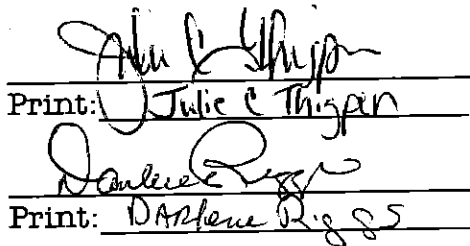 Julie C Thigpen
Print: Julie C Thigpen
Darlene Riggs
Print: DARlene Riggs